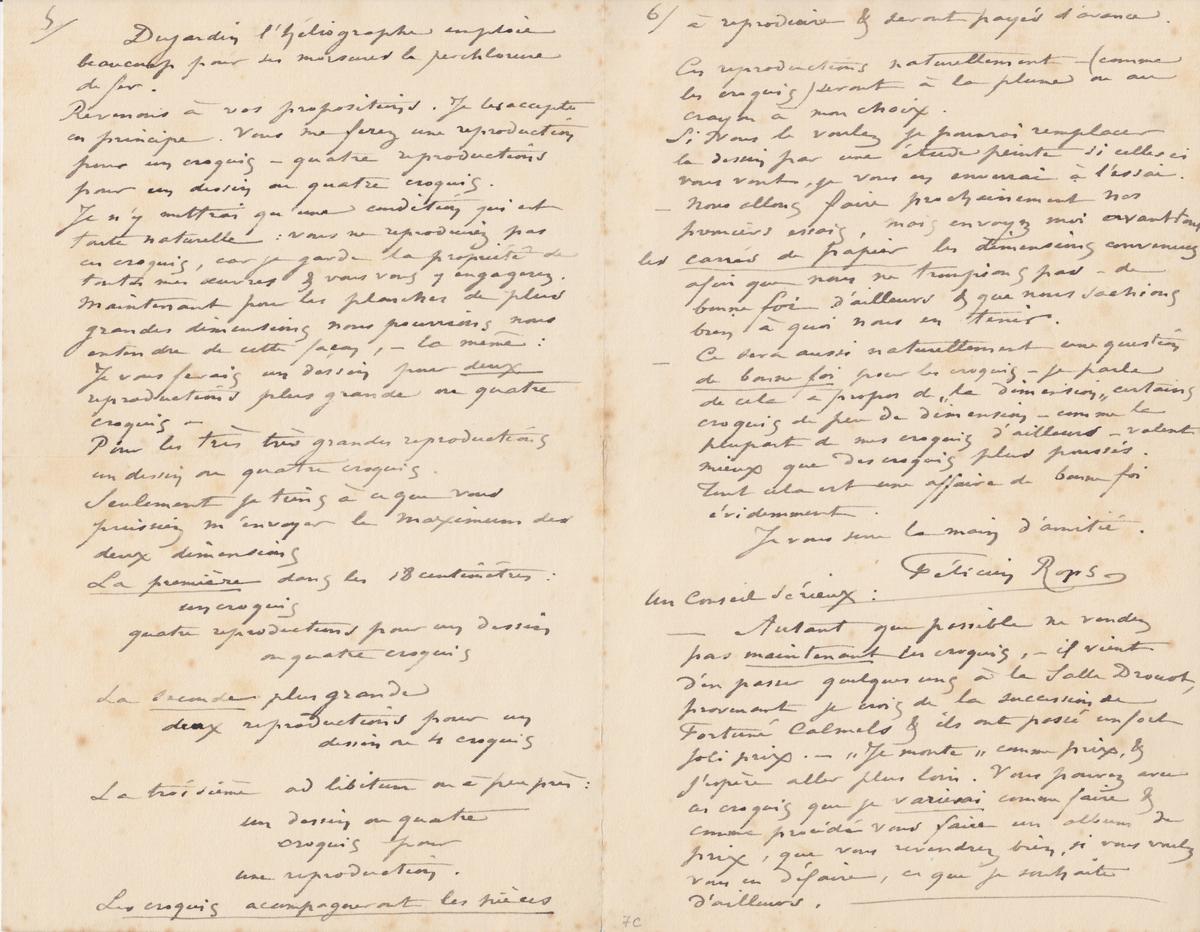 5/
Dujardin l'héliographe emploie
beaucoup pour ses morsures le perchlorure
de fer.
Revenons à vos propositions. Je les accepte
en principe. Vous me ferez une reproduction
pour un croquis – quatre reproductions
pour un dessin ou quatre croquis.
Je n'y mettrai qu'une condition qui est
toute naturelle : vous ne reproduirez pas
ces croquis, car je garde la propriété de
toutes mes œuvres & vous vous y engagerez.
Maintenant pour les planches de plus
grandes dimensions nous pourrions nous
entendre de cette façon, – la même :
Je vous ferais un dessin pour deux
reproductions plus grande ou quatre
croquis –
Pour les très très grandes reproductions
un dessin ou quatre croquis.
Seulement je tiens à ce que vous
puissiez m'envoyer le maximum des
deux dimensions
La première dans les 18 centimètres :
un croquis
quatre reproductions pour un dessin
ou quatre croquis
La seconde plus grande
deux reproductions pour un
dessin ou 4 croquis
La troisième ad libitum ou à peu près :
un dessin ou quatre
croquis pour
une reproduction.
Les croquis acompagneront les pièces
6/
à reproduire & seront payés d'avance.
Ces reproductions naturellement – (comme
les croquis) seront à la plume ou au
crayon à mon choix.
Si vous le voulez je pourrai remplacer
le dessin par une étude peinte si celles ci
vous vont, je vous en enverrai à l'essai.
– Nous allons faire prochainement nos
premiers essais, mais envoyez moi avant tout
les carrés de papier les dimensions convenues
afin que nous ne trompions pas – de
bonne foi d'ailleurs & que nous sachions
bien à quoi nous en tenir.
– Ce sera aussi naturellement une question
de bonne foi pour les croquis – je parle
de cela à propos de „la dimension„ certains
croquis de peu de dimension – comme la
plupart de mes croquis d'ailleurs – valent
mieux que des croquis plus poussés.
Tout cela est une affaire de bonne foi
évidemment.
Je vous serre la main d'amitié.
Félicien Rops
Un Conseil sérieux :
— Autant que possible ne vendez
pas maintenant les croquis, – il vient
d'en passer quelques uns à la Salle Drouot,
provenant je crois de la succession de
Fortuné Calmels & ils ont passé un fort
joli prix. – „Je monte„ comme prix, &
j'espère aller plus loin. Vous pouvez avec
ces croquis que je varierai comme faire &
comme procédé vous faire un album de
prix, que vous revendrez bien, si vous voulez
vous en défaire, ce que je souhaite
d'ailleurs.
7C